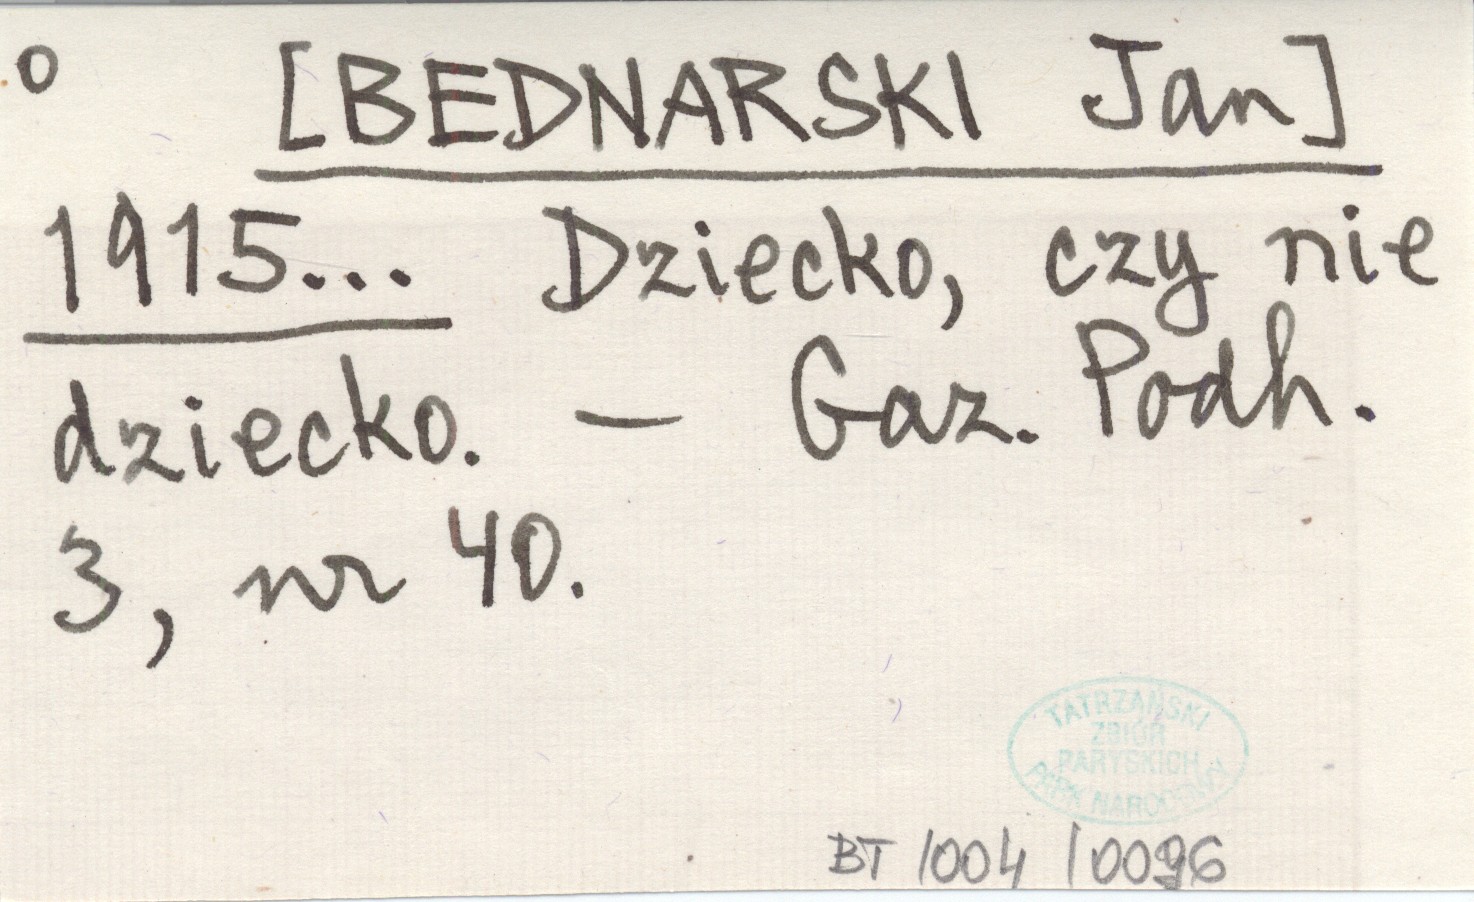 o [BEDNARSKI Jan]
1915... Dziecko, czy nie
dziecko. — Gaz. Podh.
3, nr 40.
TATRZAŃSKI
ZBIÓR
PARYSKICH
PARK NARODOWY
BT 1004 / 0096